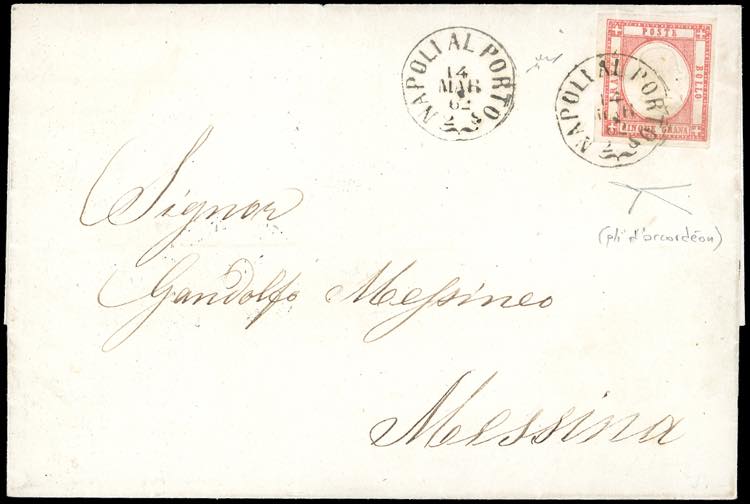 NAPOLI AL PORTO
14
MAR
62
NAPOLI AL PORTO
14
MAR
62
POSTA
BOLLO
CINQUE GRANA
(pli d'accordéon)
Signor
Gandolfo Messineo
Messina